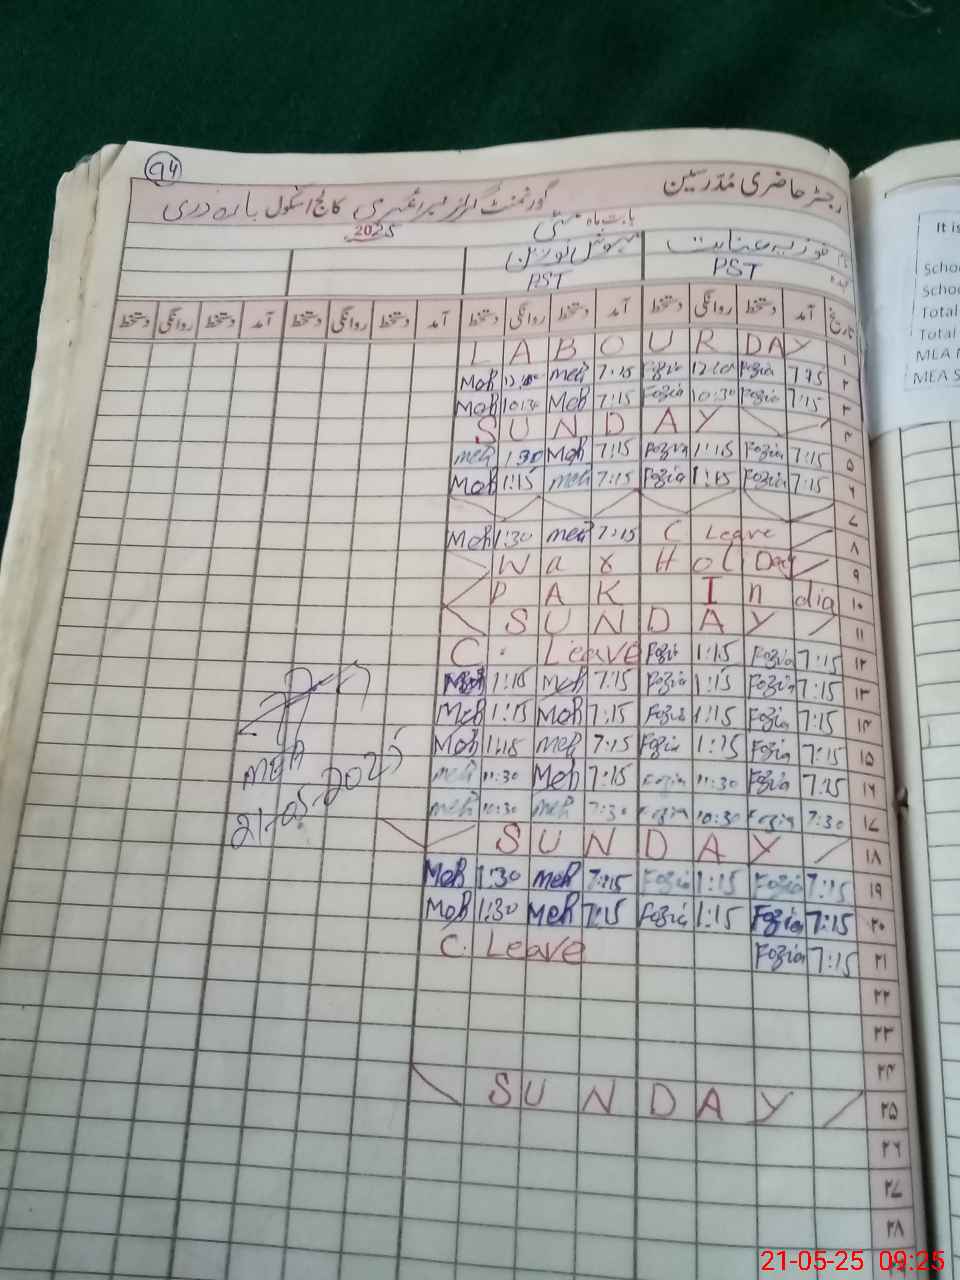 94
رجسٹر حاضری مُدرسین
گورنمنٹ گرلز پرائمری کالج اسکول بارہ دری
بابت ماہ مئی 2025
فوزیہ عنایت
PST PST
تاریخ آمد دستخط روانگی دستخط آمد دستخط روانگی دستخط آمد دستخط روانگی دستخط آمد دستخط روانگی دستخط
LABOUR DAY ۱
Meh 12:00 Meh 7:15 Fozia 12:00 Fozia 7:15 ۲
Meh 10:30 Meh 7:15 Fozia 10:30 Fozia 7:15 ۳
SUNDAY ۴
Meh 1:30 Meh 7:15 Fozia 1:15 Fozia 7:15 ۵
Meh 1:15 Meh 7:15 Fozia 1:15 Fozia 7:15 ۶
۷
Meh 1:30 Meh 7:15 C Leave ۸
War Holi Day ۹
PAK India ۱۰
SUNDAY ۱۱
C. Leave Fozia 1:15 Fozia 7:15 ۱۲
Meh 1:15 Meh 7:15 Fozia 1:15 Fozia 7:15 ۱۳
Meh 1:15 Meh 7:15 Fozia 1:15 Fozia 7:15 ۱۴
Meh 1:15 Meh 7:15 Fozia 1:15 Fozia 7:15 ۱۵
Meh 11:30 Meh 7:15 Fozia 11:30 Fozia 7:15 ۱۶
Meh 10:30 Meh 7:30 Fozia 10:30 Fozia 7:30 ۱۷
SUNDAY ۱۸
Meh 1:30 Meh 7:15 Fozia 1:15 Fozia 7:15 ۱۹
Meh 1:30 Meh 7:15 Fozia 1:15 Fozia 7:15 ۲۰
C. Leave Fozia 7:15 ۲۱
۲۲
۲۳
۲۴
SUNDAY ۲۵
۲۶
۲۷
۲۸
21-05-2025
It is
Schoo
Schoo
Total
Total
MEA S
21-05-25 09:25